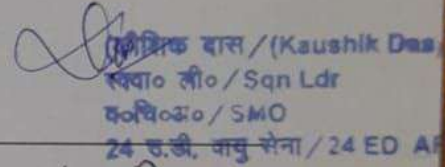 (कौशिक दास / (Kaushik Das)
स्क्वा० ली० / Sqn Ldr
व०चि०अ० / SMO
24 उ.डी. वायु सेना / 24 ED AF